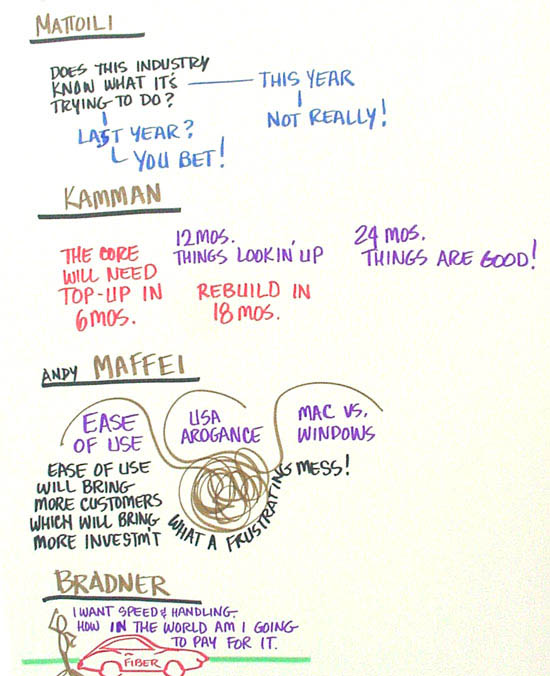 MATTOILI
DOES THIS INDUSTRY
KNOW WHAT IT'S
TRYING TO DO?
THIS YEAR
NOT REALLY!
LAST YEAR?
YOU BET!
KAMMAN
THE CORE
WILL NEED
TOP-UP IN
6 MOS.
12 MOS.
THINGS LOOKIN' UP
REBUILD IN
18 MOS.
24 MOS.
THINGS ARE GOOD!
ANDY MAFFEI
EASE
OF USE
USA
AROGANCE
MAC VS.
WINDOWS
EASE OF USE
WILL BRING
MORE CUSTOMERS
WHICH WILL BRING
MORE INVESTM'T
WHAT A FRUSTRATING MESS!
BRADNER
I WANT SPEED & HANDLING.
HOW IN THE WORLD AM I GOING
TO PAY FOR IT.
FIBER